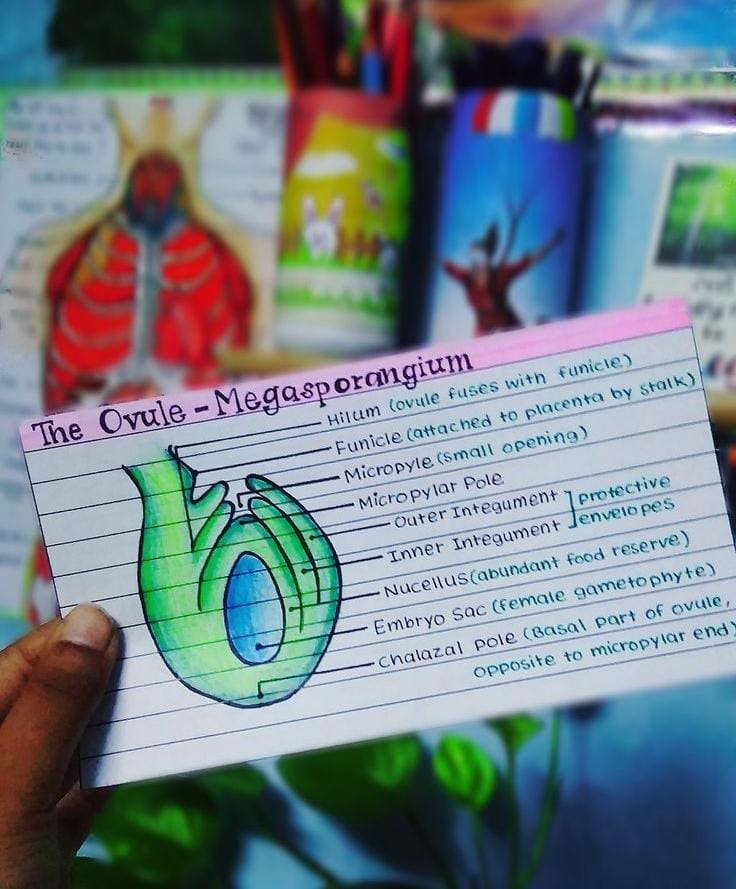 The Ovule - Megasporangium
Hilum (ovule fuses with funicle)
Funicle (attached to placenta by stalk)
Micropyle (small opening)
Micropylar Pole
Outer Integument ] protective
Inner Integument ] envelopes
Nucellus (abundant food reserve)
Embryo Sac (female gametophyte)
Chalazal pole (Basal part of ovule,
opposite to micropylar end)